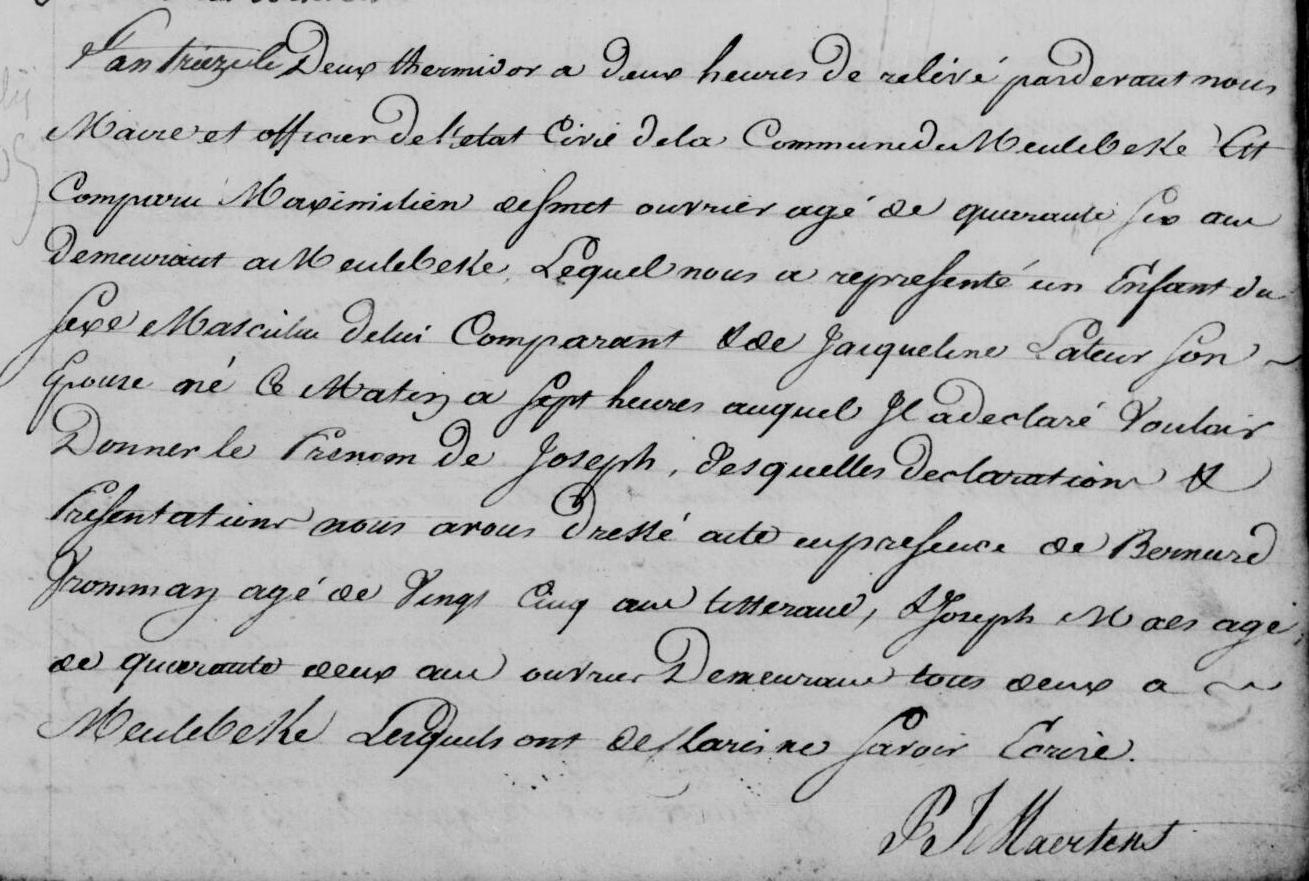 L'an treize le Deux thermidor a deux heures de relevé pardevant nous
Maire et officier de l'etat Civil de la Commune de Meulebeke Est
Comparu Maximilien desmet ouvrier agé de quarante six ans
Demeurant a Meulebeke, Lequel nous a representé un Enfant du
sexe Masculin de lui Comparant & de Jacqueline Lateur son
Epouse né Ce Matin a sept heures auquel Il a declaré Vouloir
Donner le Prenom de Joseph, desquelles declaration &
Presentations nous avons Dressé acte en presence de Bernard
Trommay agé de Vingt Cinq ans & Joseph Maes agé
de quarante deux ans ouvrier Demeurans tous deux a
Meulebeke Lesquels ont declaré ne savoir Ecrire.
P J Maertens